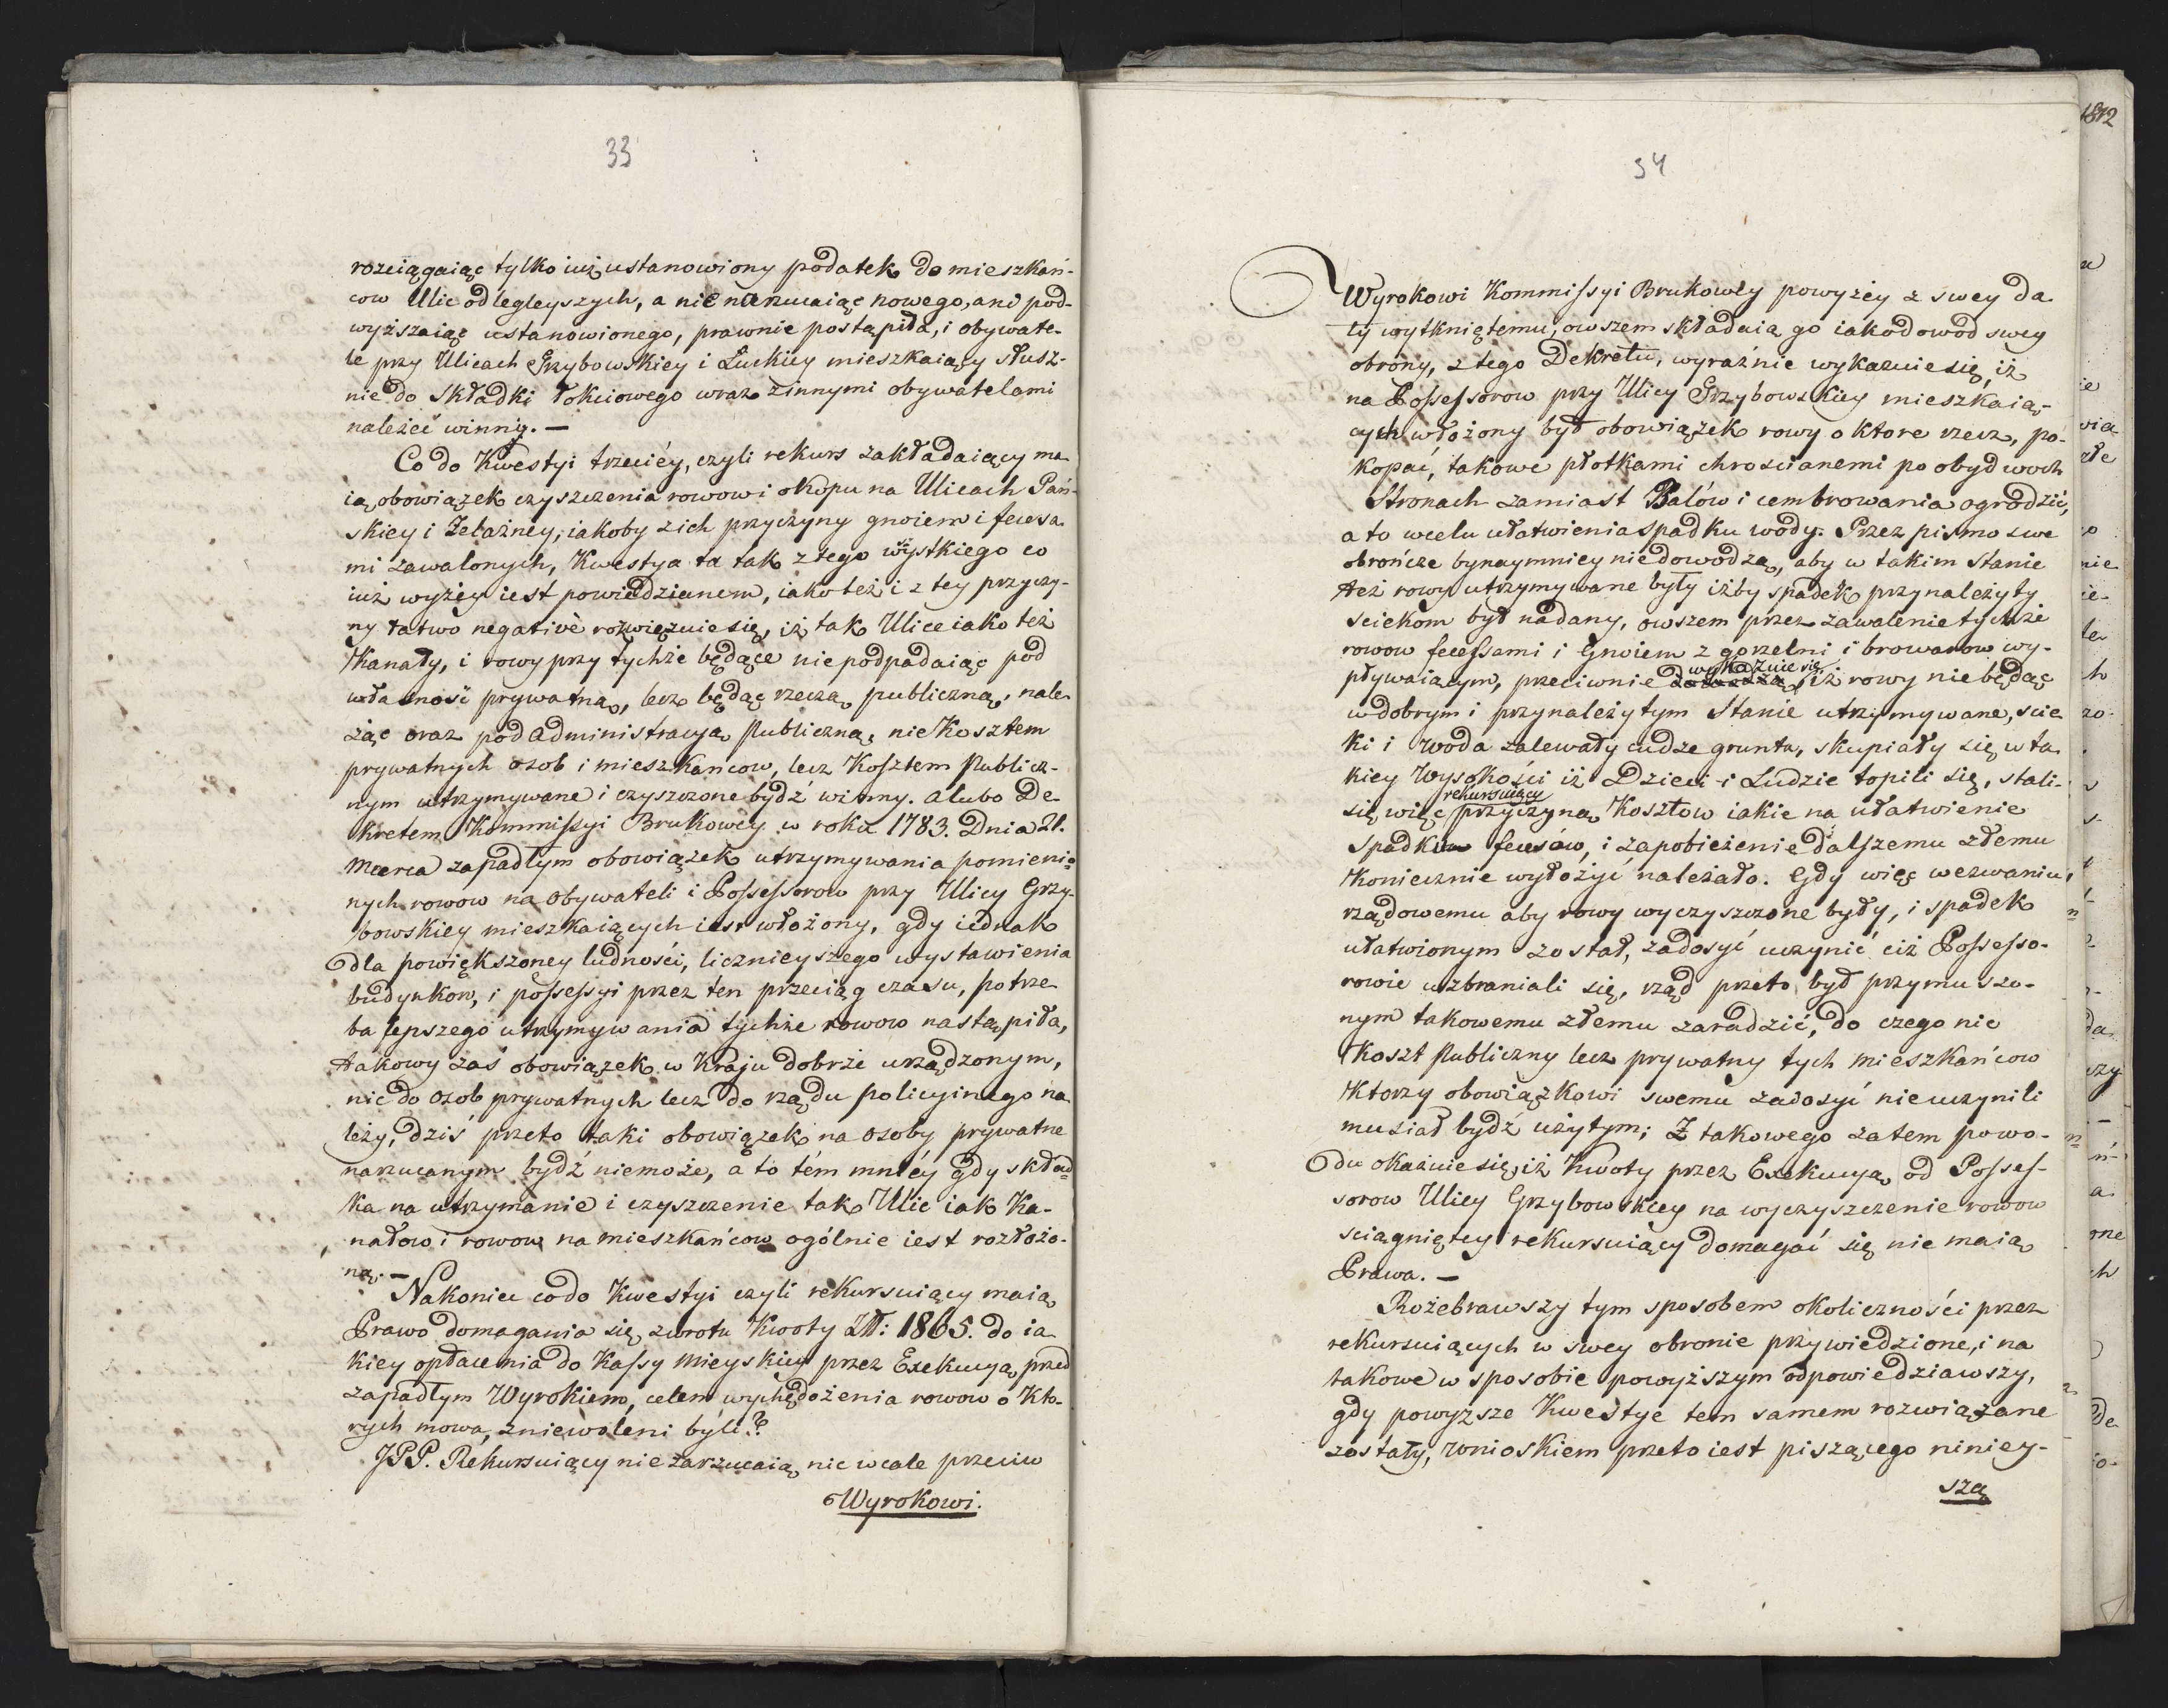 33
rozciągaiąc tylko iuż ustanowiony podatek do mieszkań-
cow Ulic odlegleyszych, a nie narzucaiąc nowego, ani pod-
wyższaiąc ustanowionego, prawnie postąpiła, i obywate-
le przy Ulicach Grzybowskiey i Luckiey mieszkaiący słusz-
nie do Składki łokciowego wraz z innymi obywatelami
należeć winni. —
Co do Kwestyi trzeciéy, czyli rekurs zakładaiący ma
ią obowiązek czyszczenia rowow i okopu na Ulicach Pań-
skiey i Żelazney, iakoby z ich przyczyny gnoiem i fecesa
mi zawalonych, Kwestya ta tak z tego wszystkiego co
iuż wyżey iest powiedzianem, iako też i z tey przyczy-
ny łatwo negativè rozwięzuie się, iż tak Ulice iako też
Kanały, i rowy przy tychże będące nie podpadaiąc pod
własność prywatną, lecz będąc rzeczą publiczną, nale
żąc oraz pod administracyą Publiczną, nie Kosztem
prywatnych osob i mieszkancow, lecz Kosztem Publicz-
nym utrzymywane i czyszczone bydź winny. a lubo De-
kretem Kommissyi Brukowey w roku 1783. Dnia 21.
Marca zapadłym obowiązek utrzymywania pomienio=
nych rowow na obywateli i Possessorow przy Ulicy Grzy-
bowskiey mieszkaiących iest włożony, gdy iednak
dla powiększoney ludności, licznieyszego wystawienia
budynkow, i possessyi przez ten przeciąg czasu, potrze
ba lepszego utrzymywania tychże rowow nastąpiła,
takowy zaś obowiązek w Kraju dobrze urządzonym,
nie do Osob prywatnych lecz do rządu policyinego na
leży, dziś przeto taki obowiązek na osoby prywatne
narzucanym bydź niemoże, a to tém mniéy gdy skład=
ka na utrzymanie i czyszczenie tak Ulic iak Ka-
nałow i rowow na mieszkańcow ogólnie iest rozłożo-
ną. —
Nakoniec co do Kwestyi czyli rekursuiący maią
Prawo domagania się zwrotu Kwoty Zł: 1865. do ia
kiey opłacenia do Kassy Mieyskiey przez Exekucyą przed
zapadłym Wyrokiem, celem wychędożenia rowow o Kto-
rych mowa, zniewoleni byli?
JPP. Rekursuiący nie zarzucaią nic wcale przeciw
Wyrokowi.
34
Wyrokowi Kommissyi Brukowey powyżey z swey da
ty wytkniętemu, owszem składaią go iako dowod swey
obrony, z tego Dekretu, wyraźnie wykazuie się, iż
na Possessorow przy Ulicy Grzybowskiey mieszkaią-
cych włożony był obowiązek rowy o ktore rzecz, po-
kopać, takowe płotkami chrościanemi po obydwoch
Stronach zamiast Balów i cembrowania ogrodzić,
a to w celu ułatwienia spadku wody. Przez pismo swe
obrończe bynaymniey niedowodzą, aby w takim Stanie
też rowy utrzymywane były iżby spadek przynależyty
sciekom był nadany, owszem przez zawalenie tychże
rowow fecessami i Gnoiem z gorzelni i browarow wy-
wykazuie się
pływaiącym, przeciwnie dowodzą, iż rowy nie będąc
w dobrym i przynależytym Stanie utrzymywane, scie
ki i woda zalewały cudze grunta, skupiały się w ta
kiey Wysokości iż Dzieci i Ludzie topili się, stali-
rekursuiący
się więc przyczyną Kosztow iakie na ułatwienie
Spadku fecesów, i zapobieżenie dalszemu złemu
Koniecznie wyłożyć należało. Gdy więc wezwaniu
rządowemu aby rowy wyczyszczone były, i spadek
ułatwionym został, zadosyć uczynić ciż Possesso-
rowie wzbraniali się, rząd przeto był przymuszo-
nym takowemu złemu zaradzić, do czego nie
Koszt Publiczny lecz prywatny tych mieszkańcow
Ktorzy obowiązkowi swemu zadosyć nie uczynili
musiał bydź użytym; Z takowego zatem powo-
du okazuie się, iż Kwoty przez Exekucyą od Posses-
sorow Ulicy Grzybowskiey na wyczyszczenie rowow
sciągniętey rekursuiący domagać się nie maią
Prawa. —
Rozebrawszy tym sposobem okoliczności przez
rekursuiących w swey obronie przywiedzione, i na
takowe w sposobie powyższym odpowiedziawszy,
gdy powyższe Kwestye tem samem rozwiązane
zostały, wnioskiem przeto iest piszącego niniey-
szą
1812